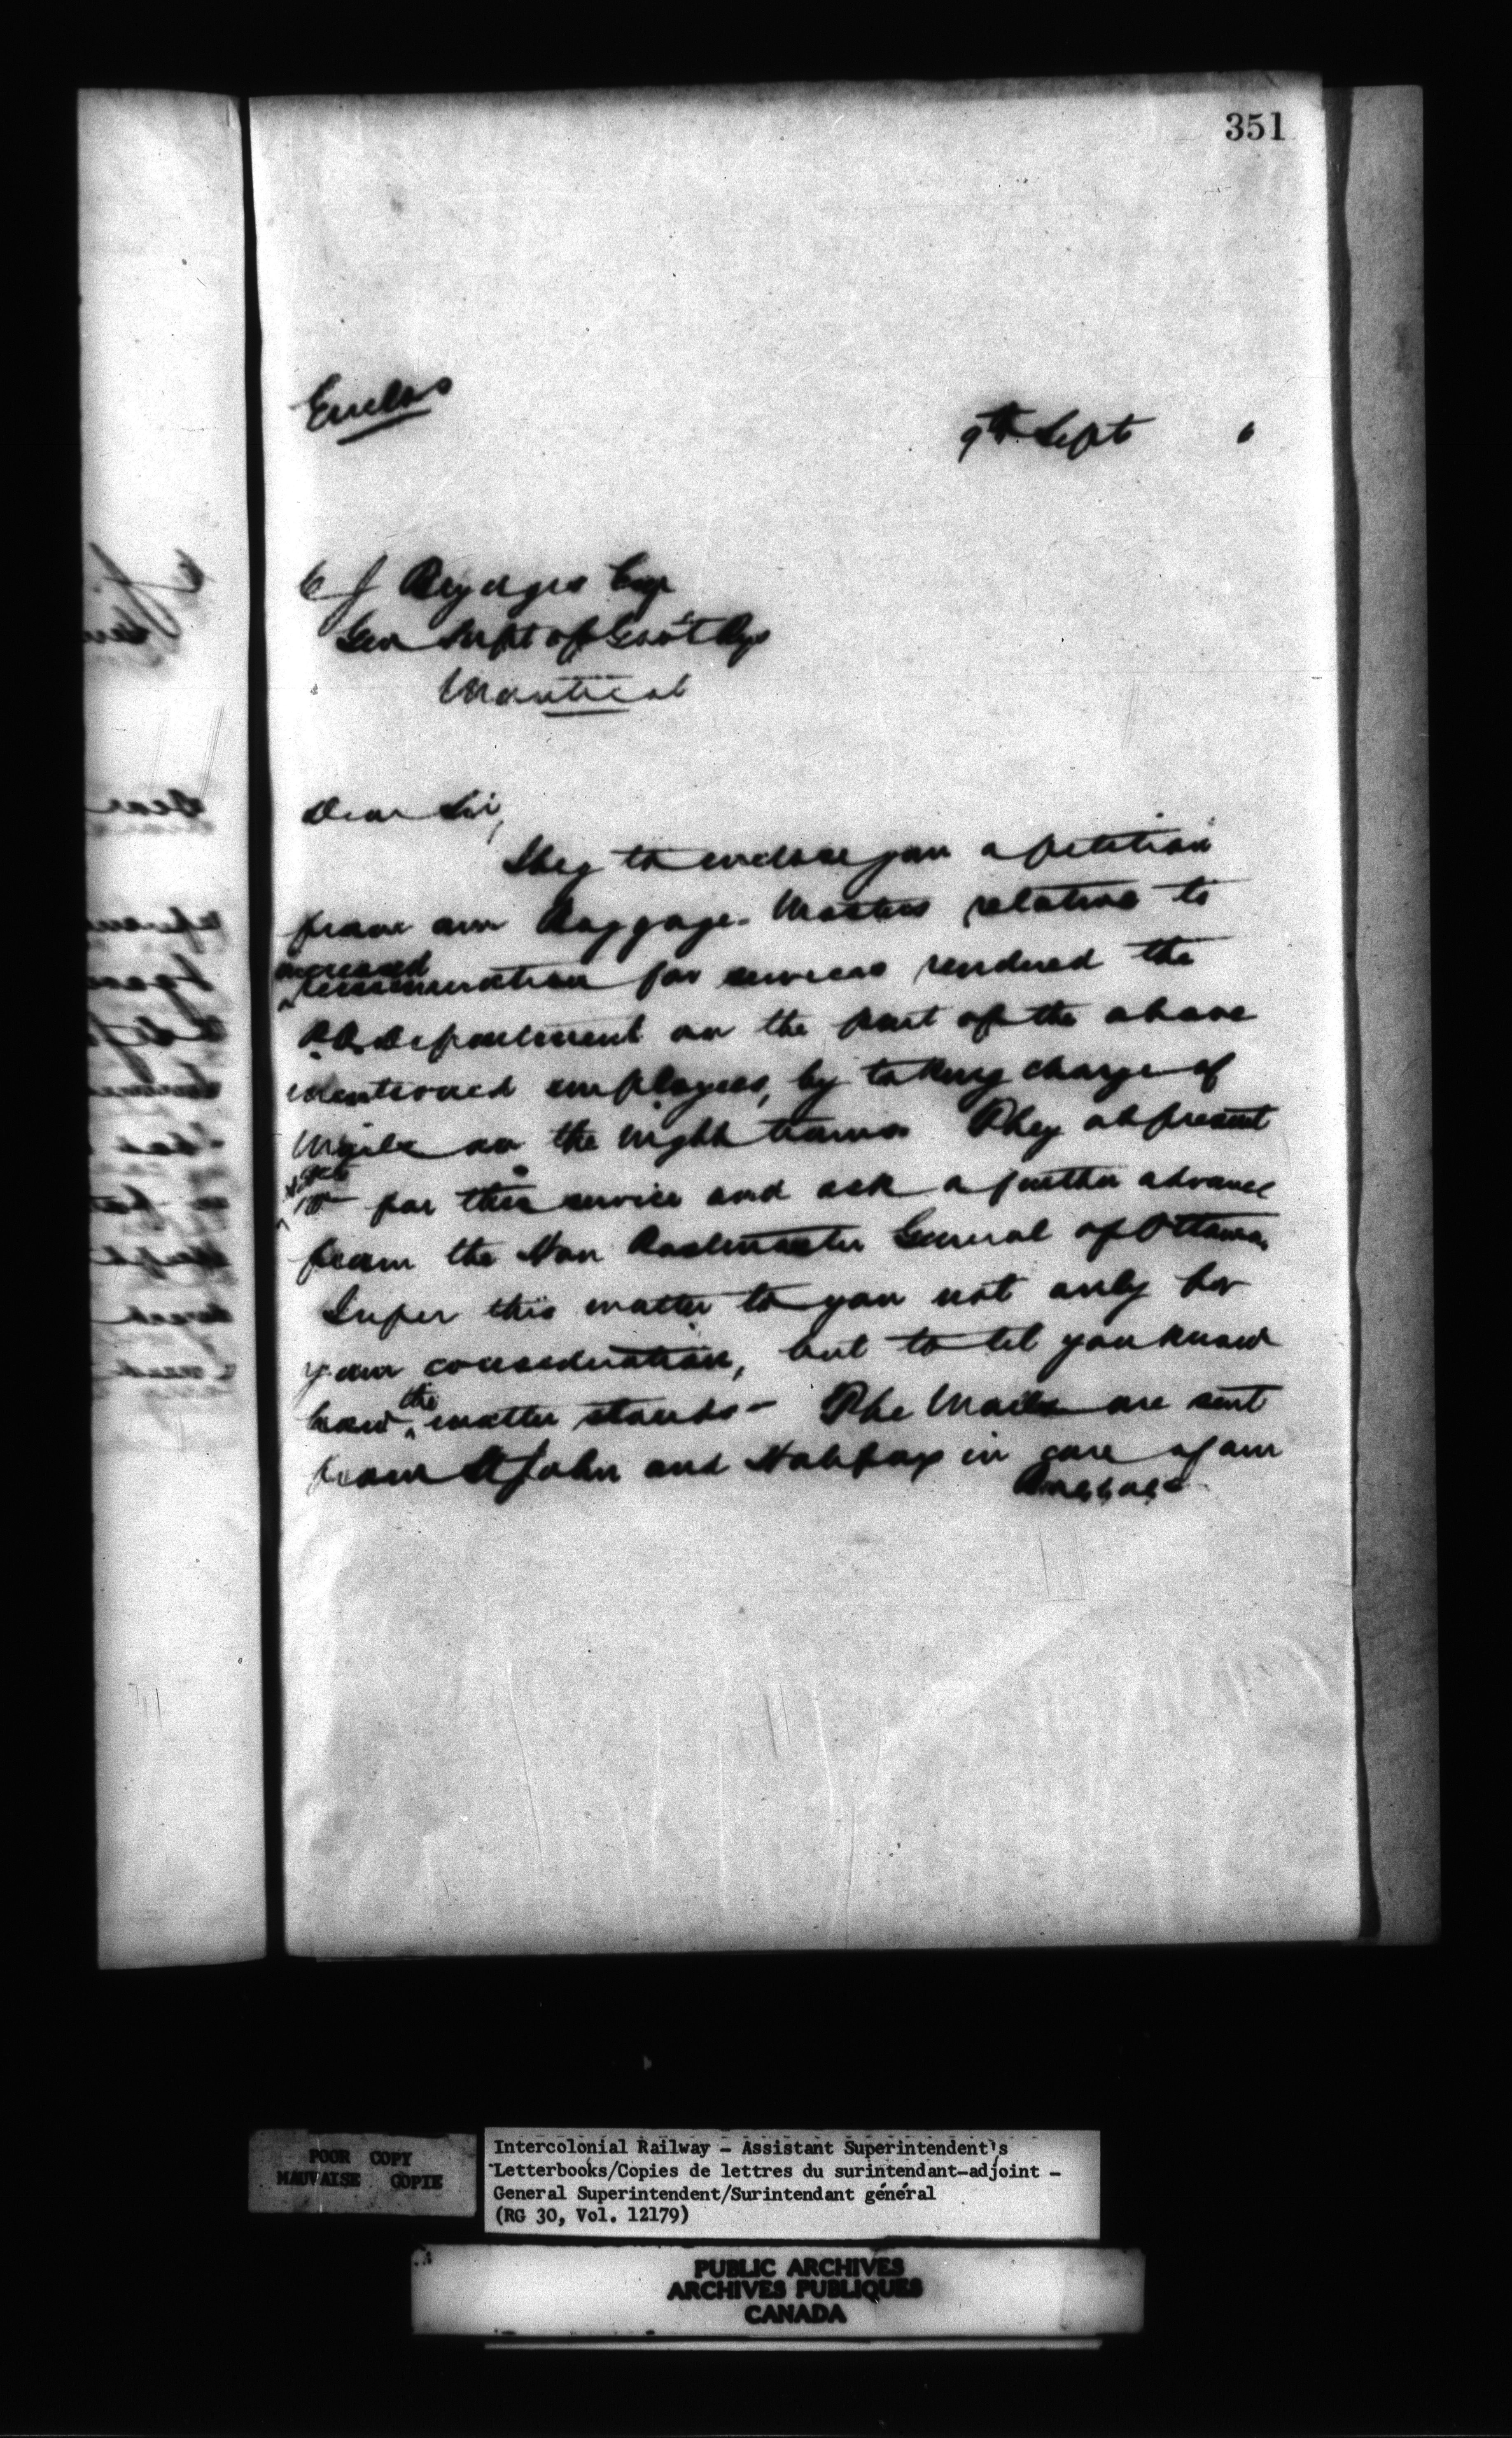 351
Enclos
9th Sept 6
C J Brydges Esq
Gen Supt of Gov't Rys
Montreal
Dear Sir,
I beg to enclose you a petition
from our Baggage-Masters relative to
increased
remuneration for services rendered the
P.O. Department on the part of the above
mentioned employees, by taking charge of
Mails on the night trains They at present
for this service and ask a further advance
from the Hon Postmaster General of Ottawa.
I refer this matter to you not only for
your consideration, but to let you know
how the matter stands - The Mails are sent
from St John and Halifax in care of our
Baggage
POOR COPY
MAUVAISE COPIE
Intercolonial Railway - Assistant Superintendent's
Letterbooks/Copies de lettres du surintendant-adjoint -
General Superintendent/Surintendant général
(RG 30, Vol. 12179)
PUBLIC ARCHIVES
ARCHIVES PUBLIQUES
CANADA